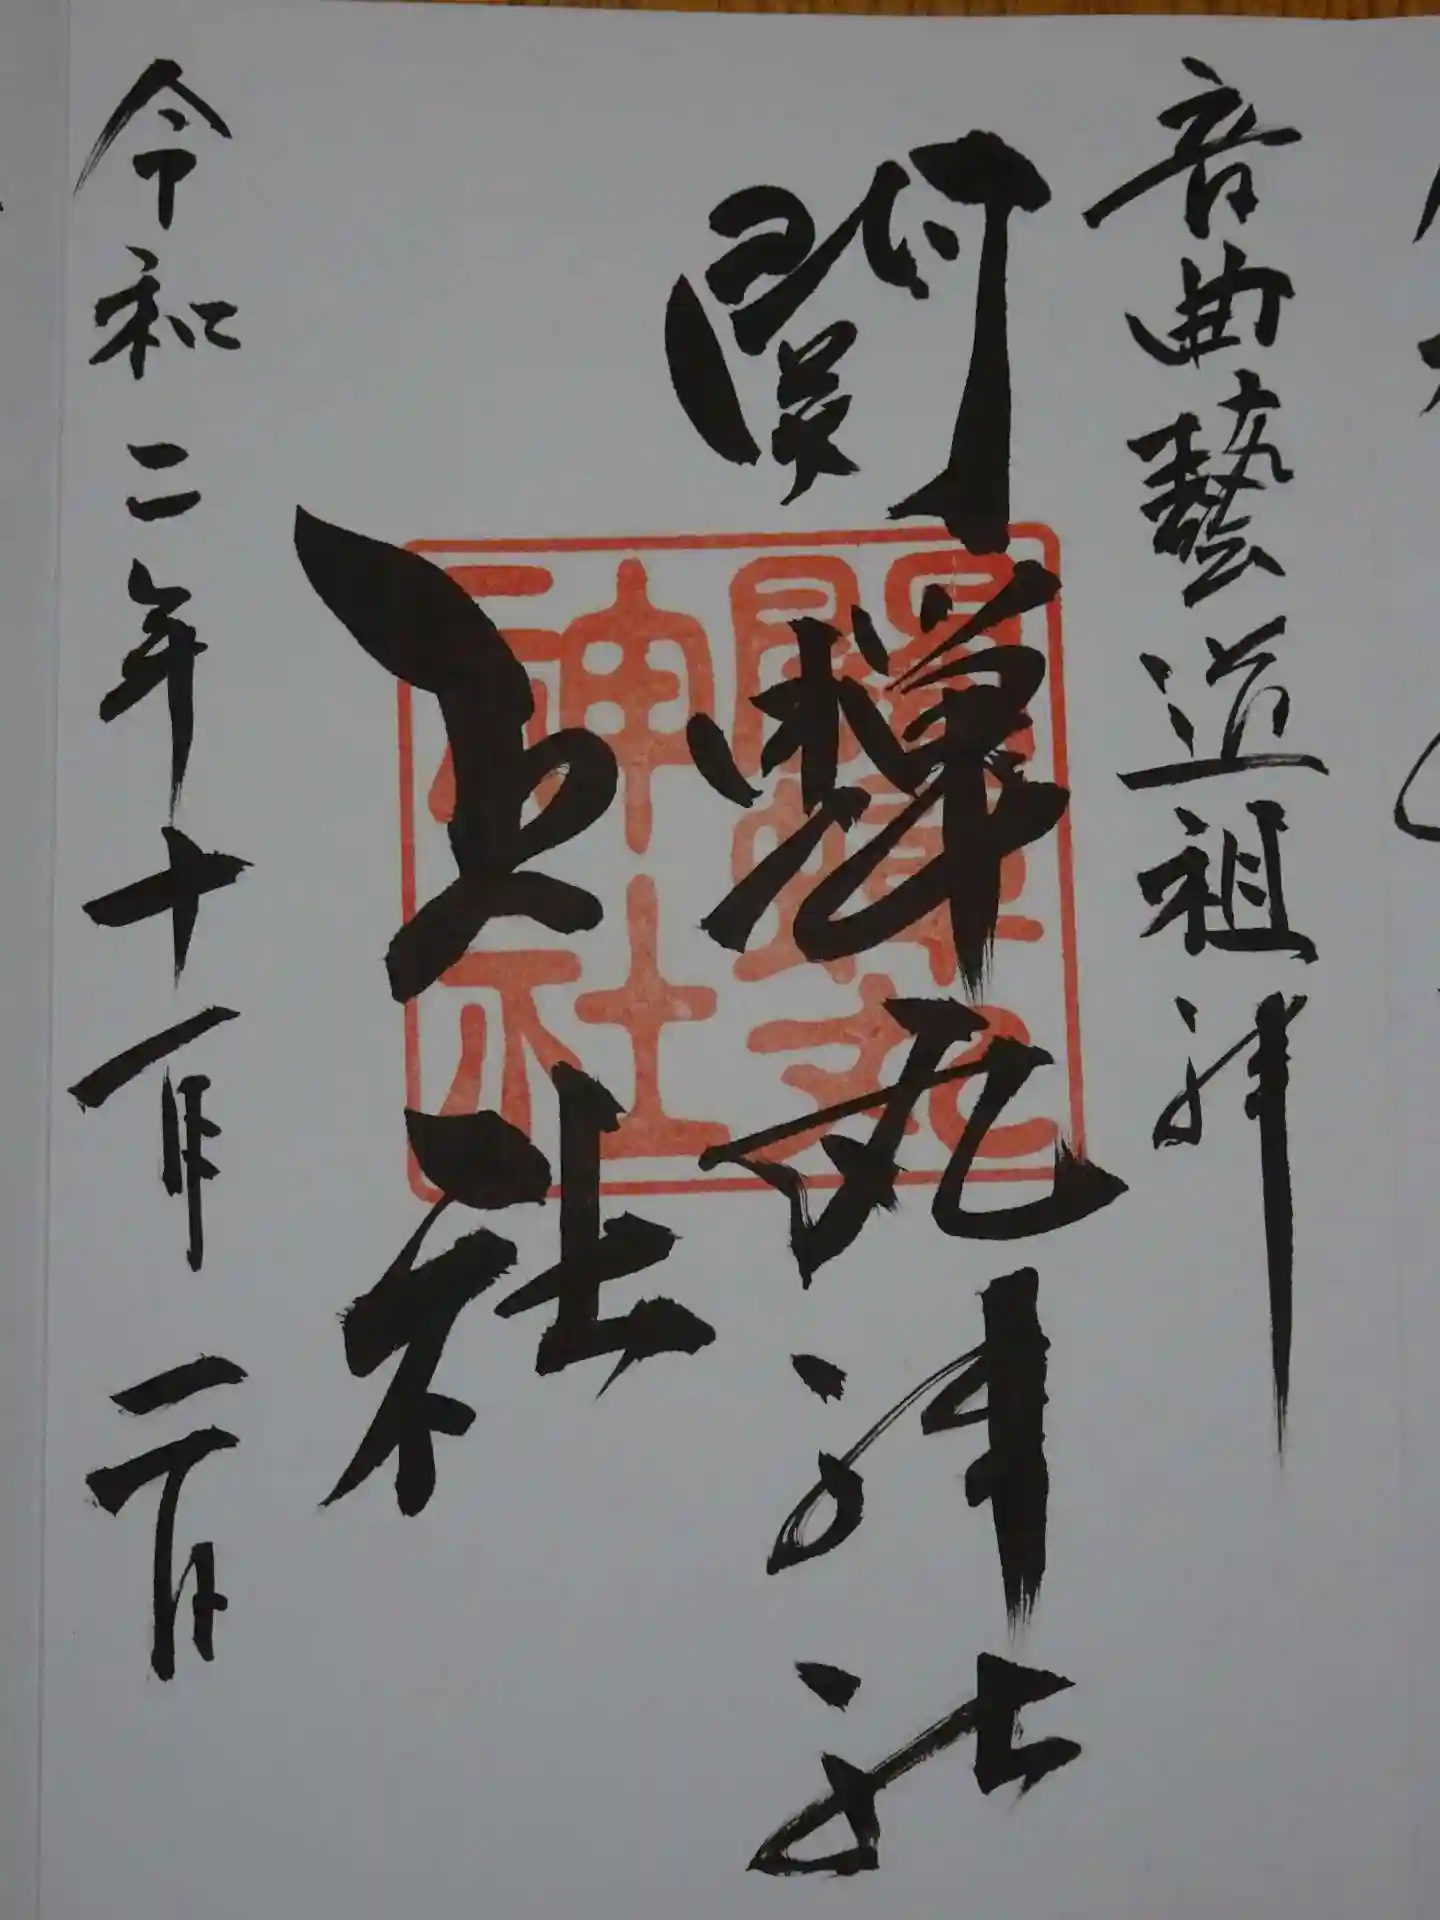 音曲藝道祖神
関蝉丸神社
上社
令和二年十一月二日
關蟬丸
神社